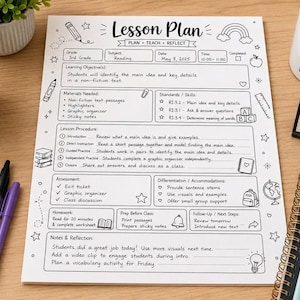 Lesson Plan
PLAN • TEACH • REFLECT
Grade: Subject: Date: Time: Completed:
3rd Grade Reading May 8, 2025
Learning Objective(s):
Students will identify the main idea and key details
in a non-fiction text.
Materials Needed:
• Non-fiction text passages
• Highlighters
• Graphic organizer
• Sticky notes
Standards / Skills:
RI.3.2 - Main idea and key details
RI.3.1 - Ask & answer questions
RI.3.4 - Determine meaning of words
Lesson Procedure:
1 Introduction Review what a main idea is and give examples.
2 Direct Instruction Read a short passage together and model finding the main idea.
3 Students work in pairs to identify the main idea and details.
4 Independent Practice Students complete a graphic organizer independently.
5 Share out answers and discuss as a class.
Assessment:
Exit ticket
Graphic organizer
Class discussion
Differentiation / Accommodations:
Provide sentence stems
Use visuals and examples
Offer small group support
Homework:
Read for 20 minutes
& complete worksheet
Prep Before Class:
Print passages
Prepare sticky notes
Follow-Up / Next Steps:
Review tomorrow
Introduce new text
Notes & Reflection:
Students did a great job today! Use more visuals next time.
Add a video clip to engage students during intro.
Plan a vocabulary activity for Friday.